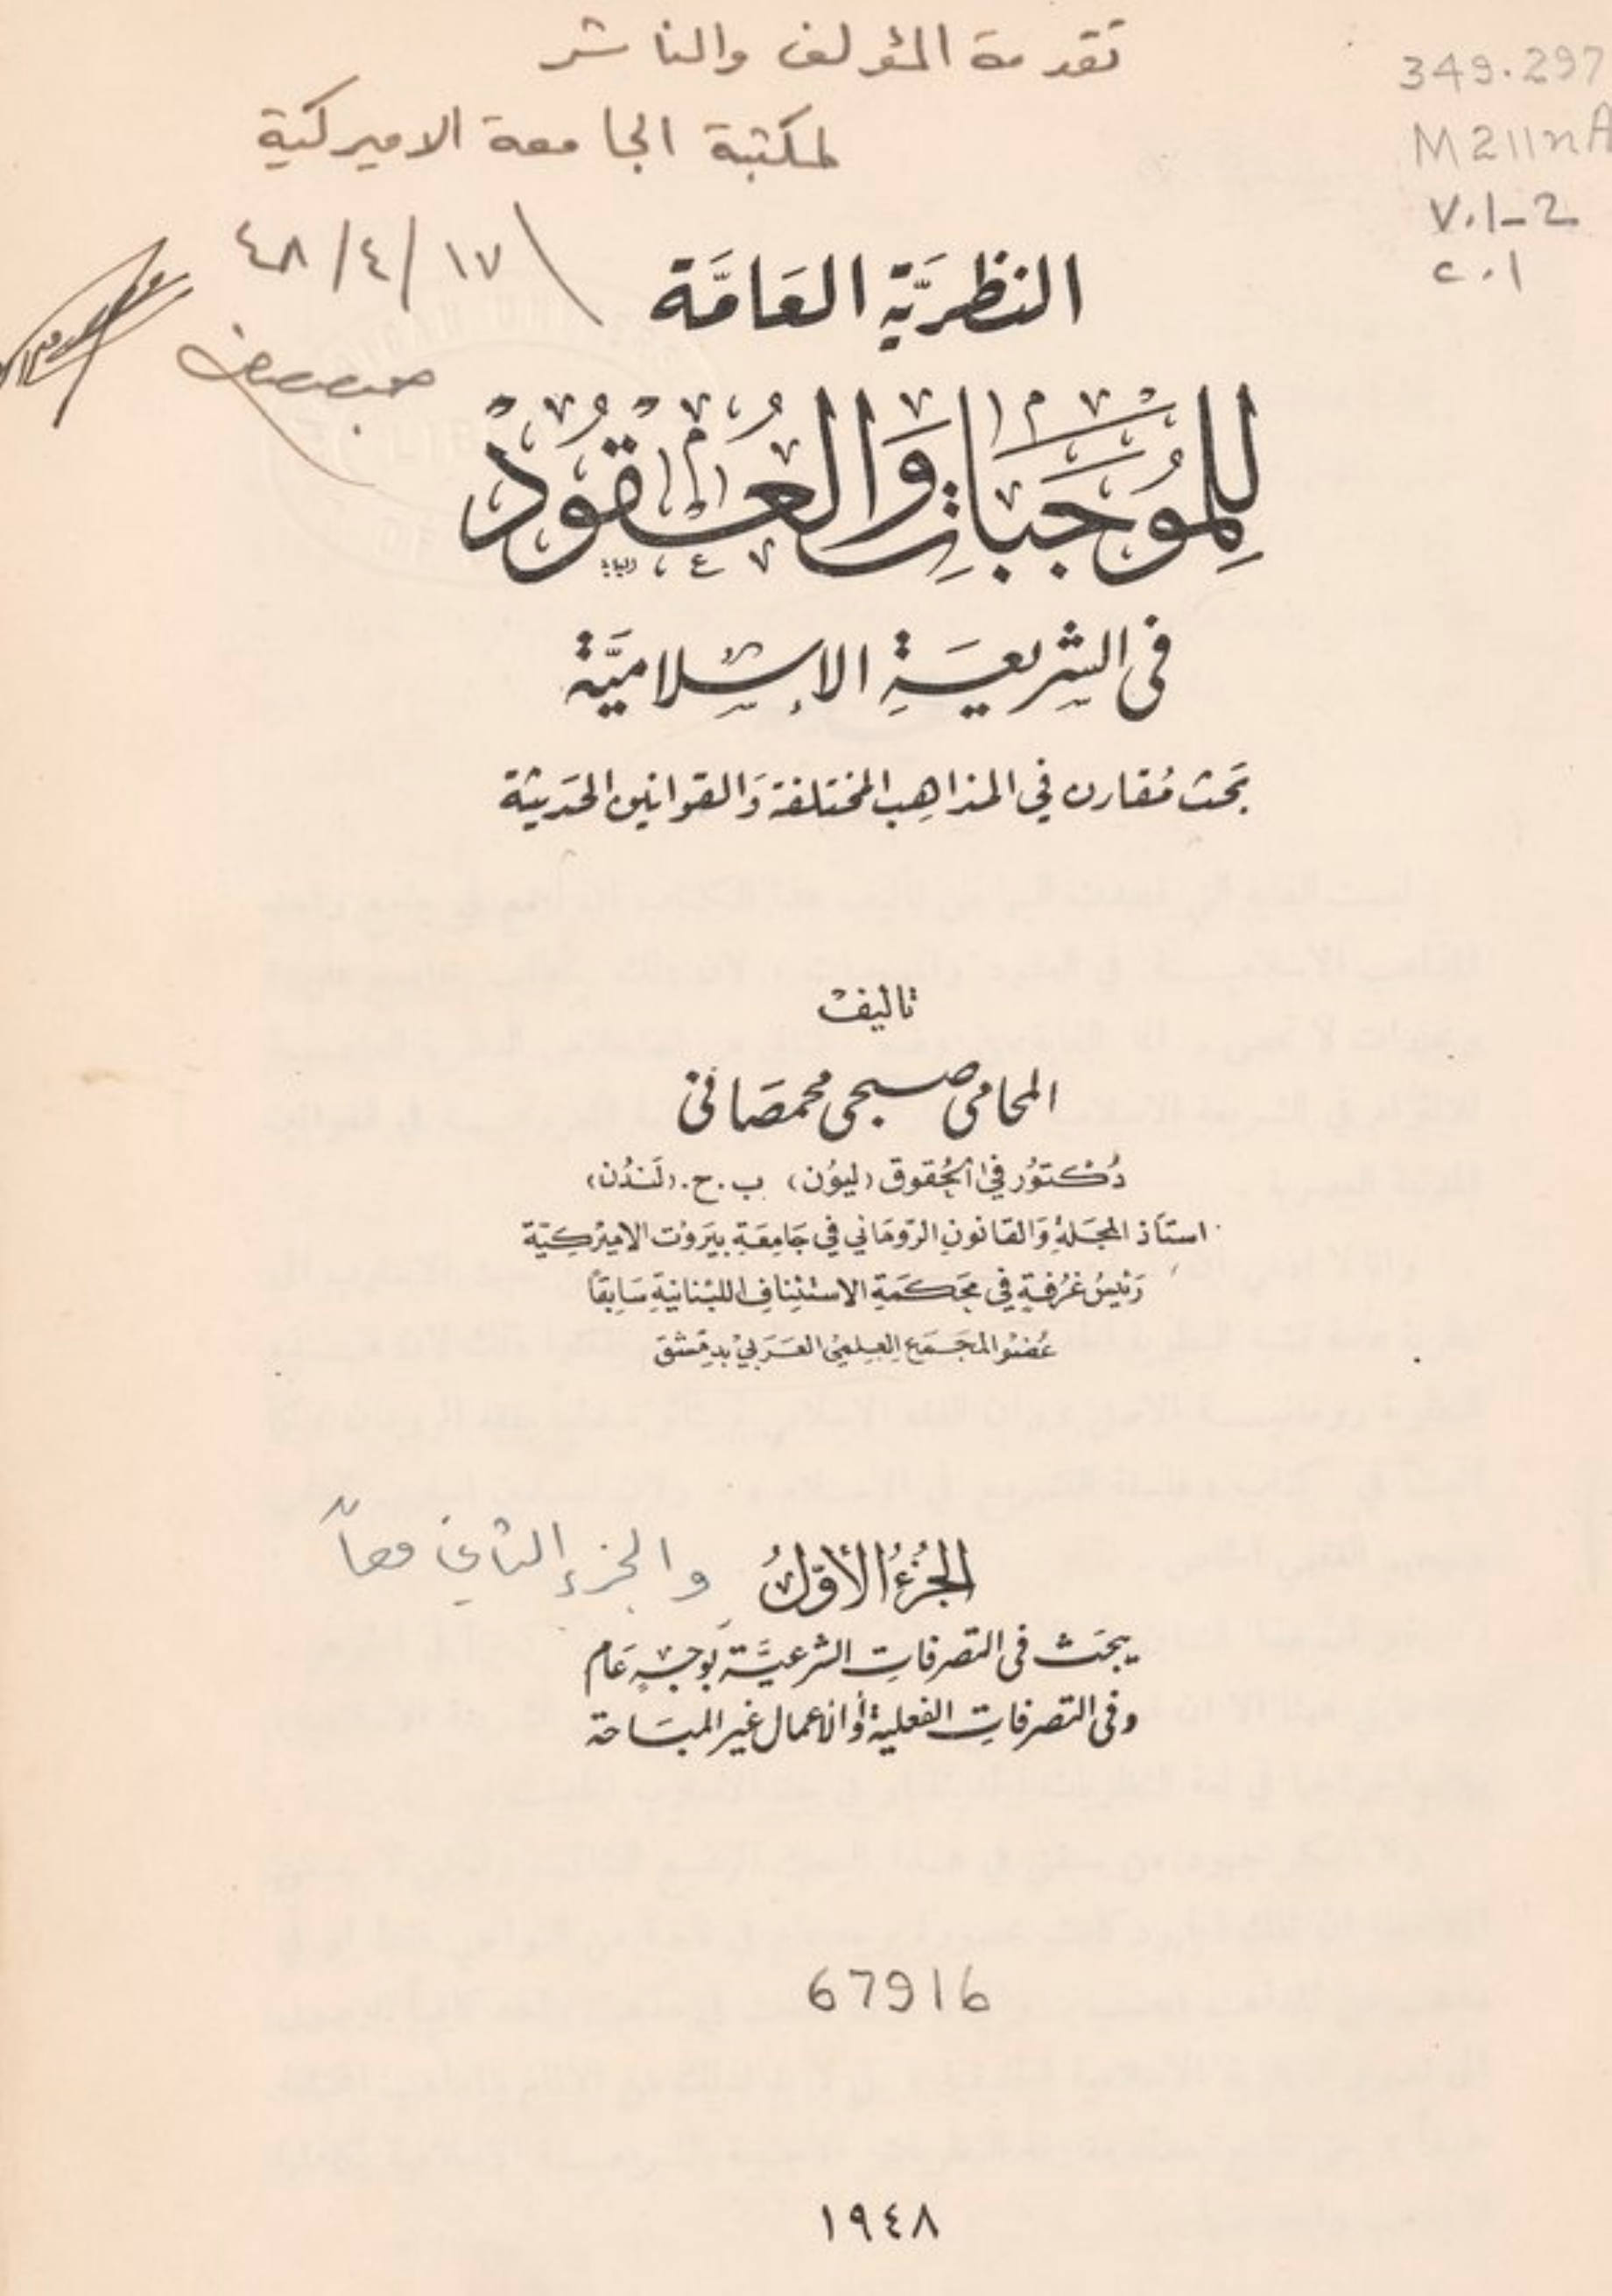 تقدمة المؤلف والناشر
لمكتبة الجامعة الاميركية
١٧/٤/٤٨
349.297
M211nA
V.1-2
c.1
النظريَّة العَامَّة
لِلمُوجَبَاتِ وَالعُقُودْ
في الشِريعَةِ الإِسْلاميَّة
بَحث مُقارن في المذاهِب المختلفة وَالقوانين الحَديثة
تأليفْ
المحامي صبحي محمصَاني
دُكْتوُر في الحُقوق (ليوُن) ب.ح. (لَندُن)
استَاذ المجَلةِ وَالقانونِ الرّومَاني في جَامِعَةِ بيَروُت الاميْركيّة
رَئيسُ غُرفةٍ في مَحكَمَةِ الاستئِنافِ اللبْنانيَةِ سَابِقاً
عُضْوُ المجَمَع العِلميْ العَرَبيْ بدِمَشق
الجُزءُ الأوّلُ والجزء الثاني معاً
يبحَث في التصرفاتِ الشرعيَّة بوَجْهٍ عَام
وفي التصرفاتِ الفعلية أو الأعمال غير المبَاحة
67916
١٩٤٨